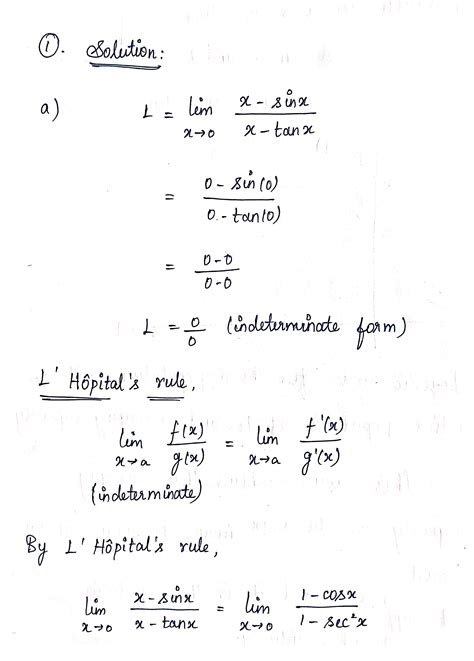 ①. Solution:
a) L = lim x→0 (x - sinx)/(x - tanx)
= (0 - sin(0))/(0 - tan(0))
= (0-0)/(0-0)
L = 0/0 (indeterminate form)
L' Hôpital's rule,
lim x→a f(x)/g(x) = lim x→a f'(x)/g'(x)
(indeterminate)
By L' Hôpital's rule,
lim x→0 (x-sinx)/(x-tanx) = lim x→0 (1-cosx)/(1-sec²x)